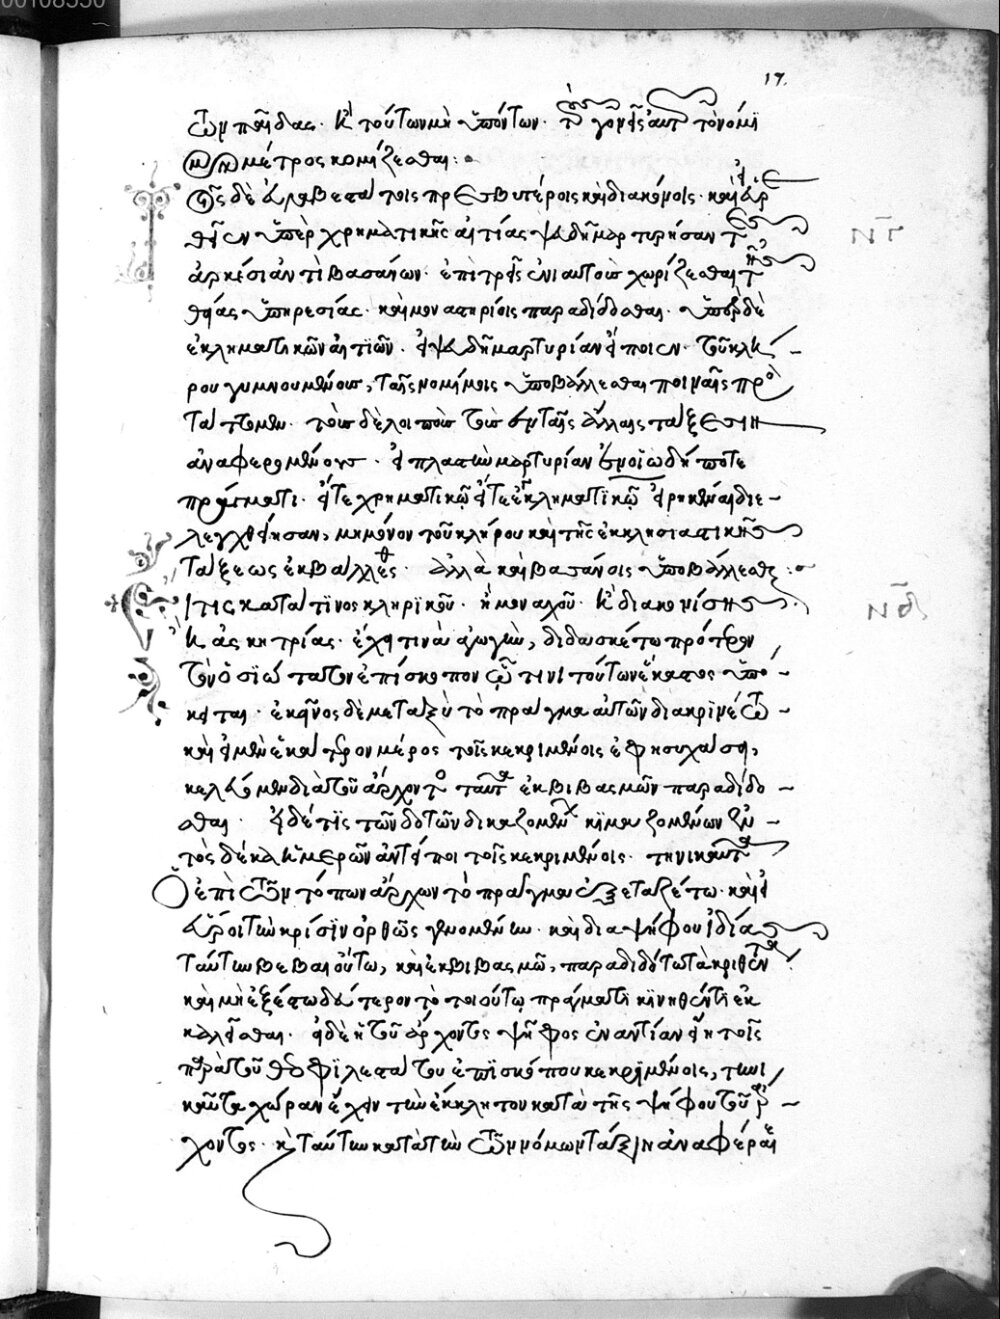 00108550
17.
τῶν παῖδας· κ(αὶ) τούτων μὴ ὑπόντων· τοὺς γονεῖς αὐτῶν τὸ νόμι
μον μέρος κομίζεσθαι:
τοῖς δὲ εὐλαβεστάτοις πρεσβυτέροις καὶ διακόνοις· καὶ εὑρ
θεῖεν ὑπὲρ χρηματικῆς αἰτίας ψευδῆ μαρτυρήσαντες
ἀρκέσει ἀντὶ βασάνων· ἐπὶ τρεῖς ἐνιαυτοὺς χωρίζεσθαι τῆς
θείας ὑπηρεσίας· καὶ μοναστηρίοις παραδίδοσθαι· ὑπὲρ δὲ
ἐκληματικῶν αἰτιῶν· εἰ ψευδῆ μαρτυρίαν εἴποιεν· τοῦ κλή
ρου γυμνουμένους, ταῖς νομίμοις ὑποβάλλεσθαι ποιναῖς προσ
τάττομεν· τοὺς δὲ λοιποὺς τοὺς ἐν ταῖς ἄλλαις τάξεσιν
ἀναφερομένους· εἰ πλαστὴν μαρτυρίαν ἐν οἱωδήποτε
πράγματι· εἴτε χρηματικῶ εἴτε ἐκληματικῶ εἰρηκέναι διε
λεγχθείησαν, μὴ μόνον τοῦ κλήρου καὶ τῆς ἐκκλησιαστικῆς
τάξεως ἐκβάλλεσθαι· ἀλλὰ καὶ βασάνοις ὑποβάλλεσθαι:
Εἴ τις κατά τϊνος κληρϊκοῦ· ἢ μοναχοῦ· κ(αὶ) διακονίσσης
κ(αὶ) ἀσκητρίας· ἔχει τινὰ ἀγωγὴν, διδασκέτω πρότερον
τὸν ὁσϊώτατον ἐπίσκοπον ᾧ τινι τούτων ἕκαστος ὑπό
κειται· ἐκεῖνος δὲ μεταξὺ τὸ πρᾶγμα αὐτῶν διακρϊνέτω
καὶ εἰ μὲν ἑκάτερον μέρος τοῖς κεκριμένοις ἐφησυχάσει,
κελεύομεν διὰ τοῦ ἄρχοντος ταῦτα ἐκβιβασμῶν παραδίδο
σθαι· εἰ δέ τϊς τῶν δϊκαζομένων ἐν
τὸς δέκα ἡμερῶν ἀντείποι τοῖς κεκριμένοις· τηνικαῦτα
ὁ ἐπὶ τῶν τόπων ἄρχων τὸ πρᾶγμα ἐξεταζέτω· καὶ εἰ
εὕροι τὴν κρίσϊν ὀρθῶς γενομένην· καὶ διὰ ψήφου ἰδίας
ταύτην βεβαιούτω, καὶ ἐκβιβασμῶ, παραδιδότω τὰ κριθέντα
καὶ μὴ ἐξέστω δεύτερον τὸ τοιούτω πράγματι κϊνηθέντι ἐκ
καλεῖσθαι· εἰ δὲ ἡ τοῦ ἄρχοντος ψῆφος ἐναντίαν εἴη τοῖς
παρὰ τοῦ θεοφϊλεστάτου ἐπϊσκόπου κεκρϊμένοις, τηνι
καῦτα χώραν ἔχειν τὴν ἔκκλητον κατὰ τῆς ψήφου τοῦ ἄρ
χοντος· κ(αὶ) ταύτην κατὰ τὴν τῶν νόμων τάξιν ἀναφέρε